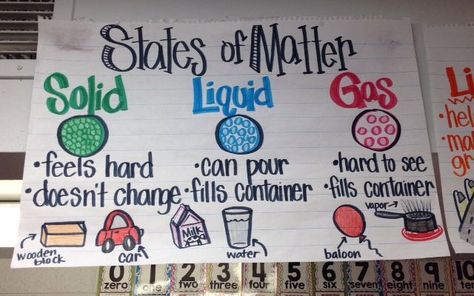 States of Matter
Solid
•feels hard
•doesn't change
wooden block
car
Liquid
•can pour
•fills container
Milk
water
Gas
•hard to see
•fills container
balloon
vapor
Li
•he
•ma
gr
0 1 2 3 4 5 6 7 8 9 10
zero one two three four five six seven eight nine ten